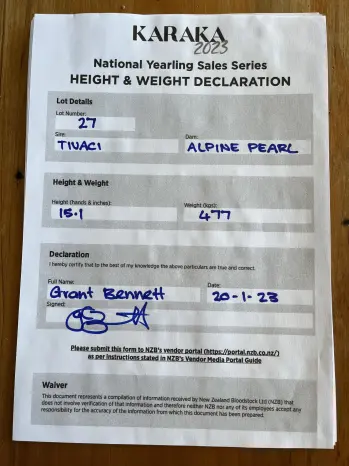 KARAKA
2023
National Yearling Sales Series
HEIGHT & WEIGHT DECLARATION
Lot Details
Lot Number:
27
Sire: Dam:
TIVACI ALPINE PEARL
Height & Weight
Height (hands & inches): Weight (kgs):
15.1 477
Declaration
I hereby certify that to the best of my knowledge the above particulars are true and correct.
Full Name: Date:
Grant Bennett 20-1-23
Signed:
Please submit this form to NZB's vendor portal (https://portal.nzb.co.nz/)
as per instructions stated in NZB's Vendor Media Portal Guide
Waiver
This document represents a compilation of information received by New Zealand Bloodstock Ltd (NZB) that
does not involve verification of that information and therefore neither NZB nor any of its employees accept any
responsibility for the accuracy of the information from which this document has been prepared.